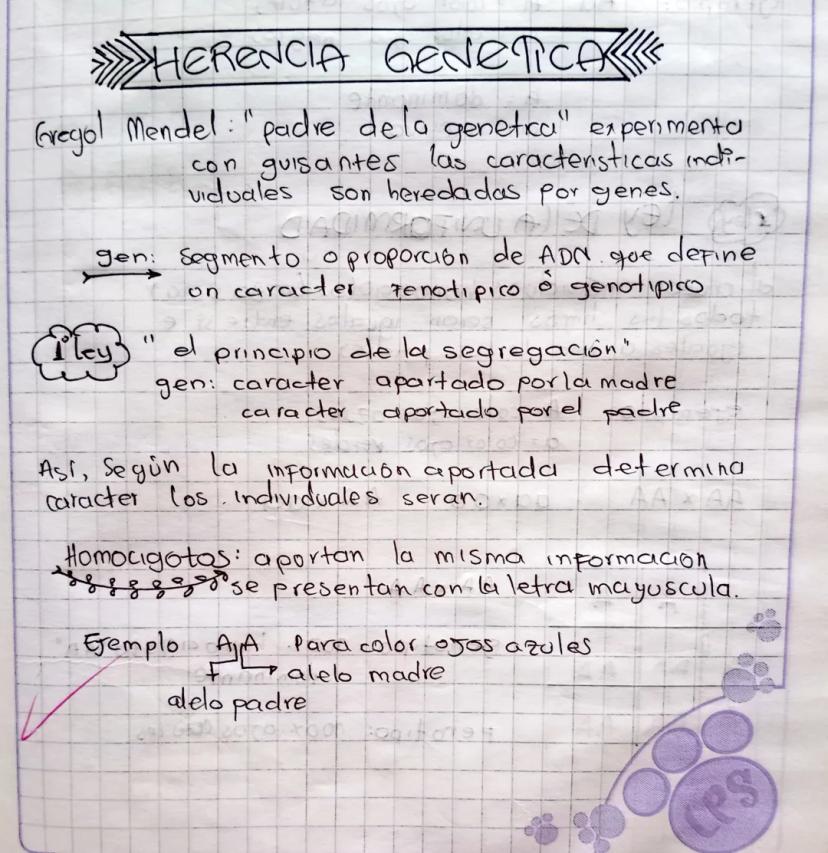 HERENCIA GENETICA
Gregol Mendel: "padre de la genetica" experimenta
con guisantes las caracteristicas indi-
viduales son heredadas por genes.
gen: segmento o proporción de ADN que define
un caracter fenotipico ó genotipico
1 ley "el principio de la segregación"
gen: caracter apartado por la madre
caracter aportado por el padre
Así, Según la información aportada determina
caracter los individuales seran.
Homocigotos: aportan la misma informacion
se presentan con la letra mayuscula.
Ejemplo AA Para color ojos azules
alelo madre
alelo padre
CPS